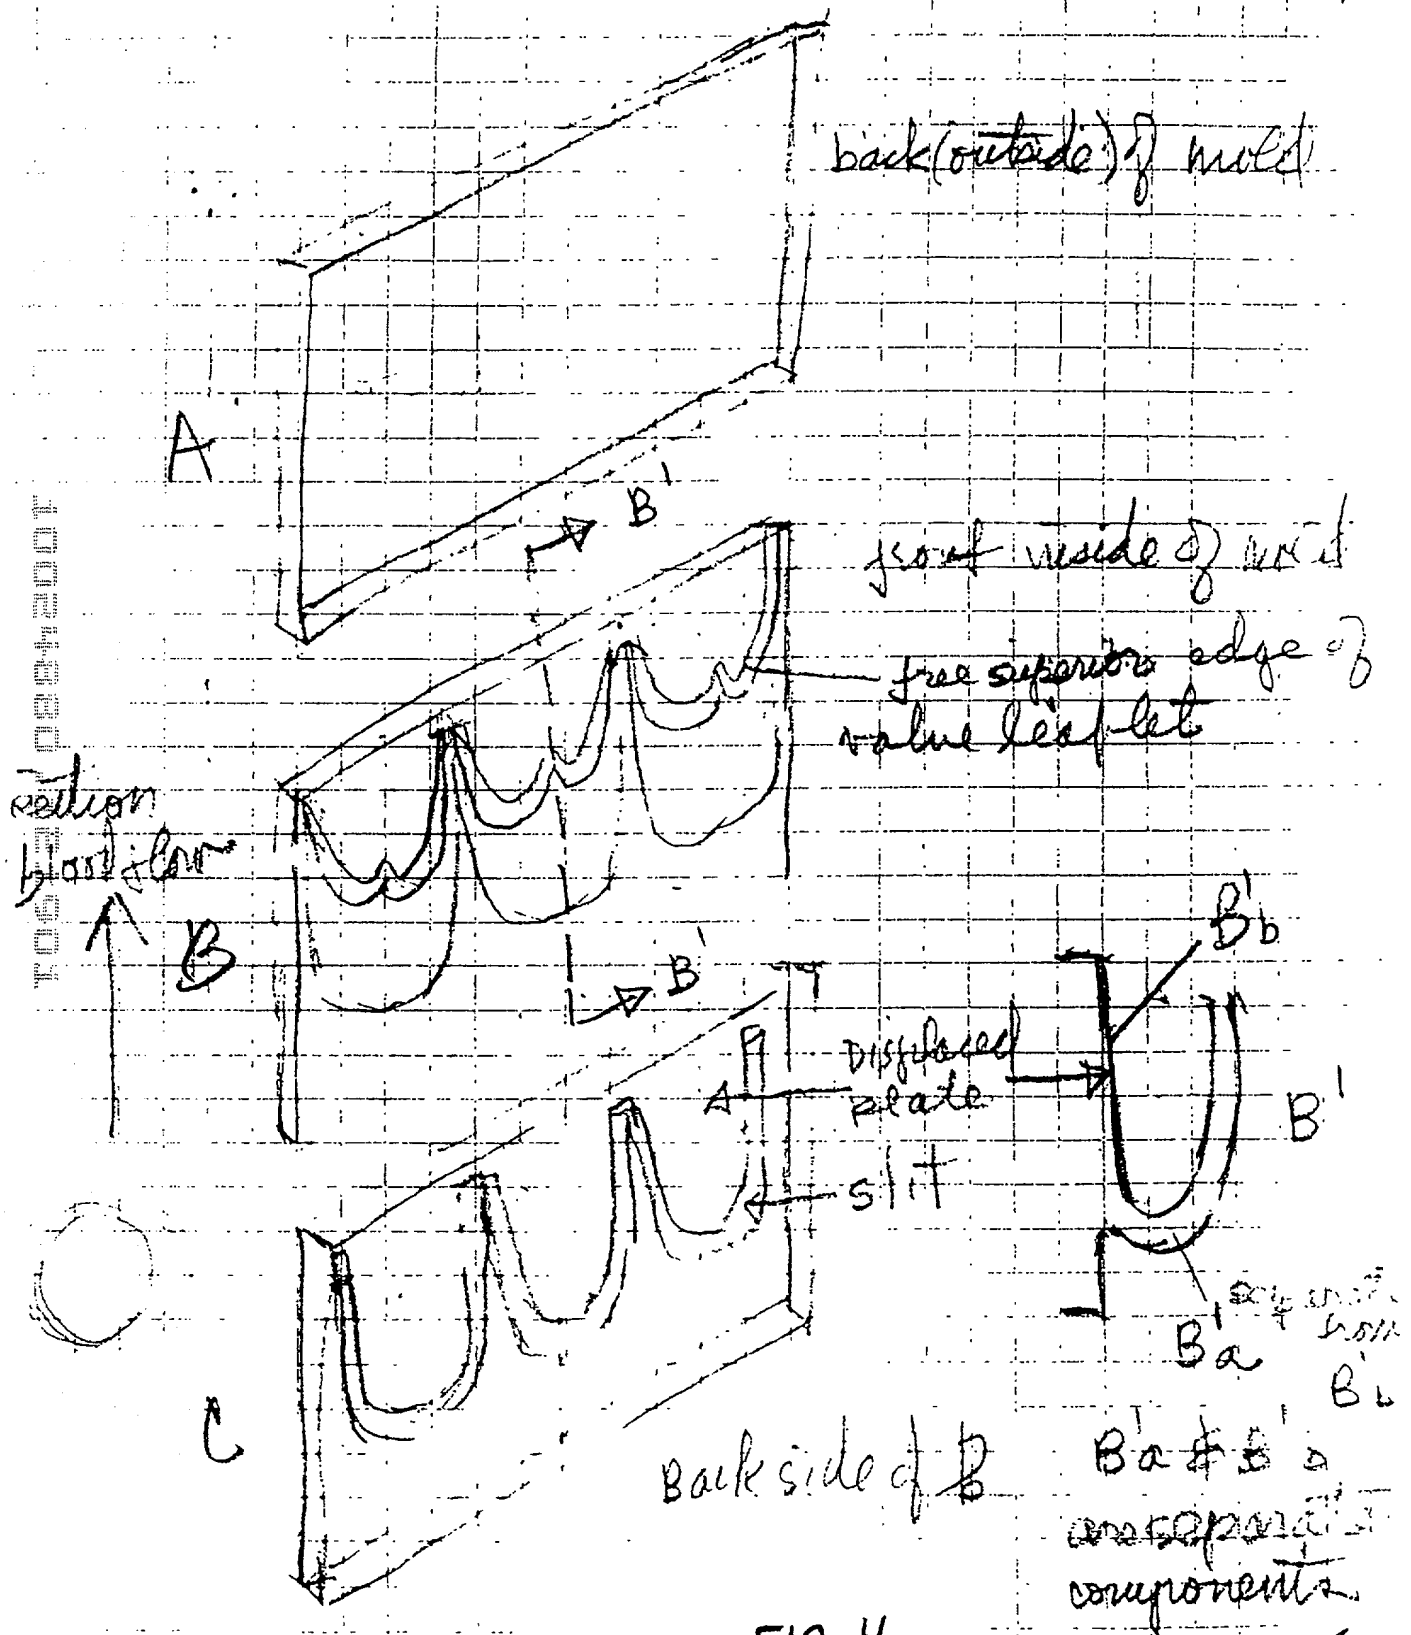 back (outside) of mold
A
B'
front inside of mold
free superior edge of
valve leaflet
blood flow
B
B'
B'b
Displaced
plate
B'
slit
B'a
from
B'b
C
Back side of B
B'a & B'b
are separate
components
FIG. 4